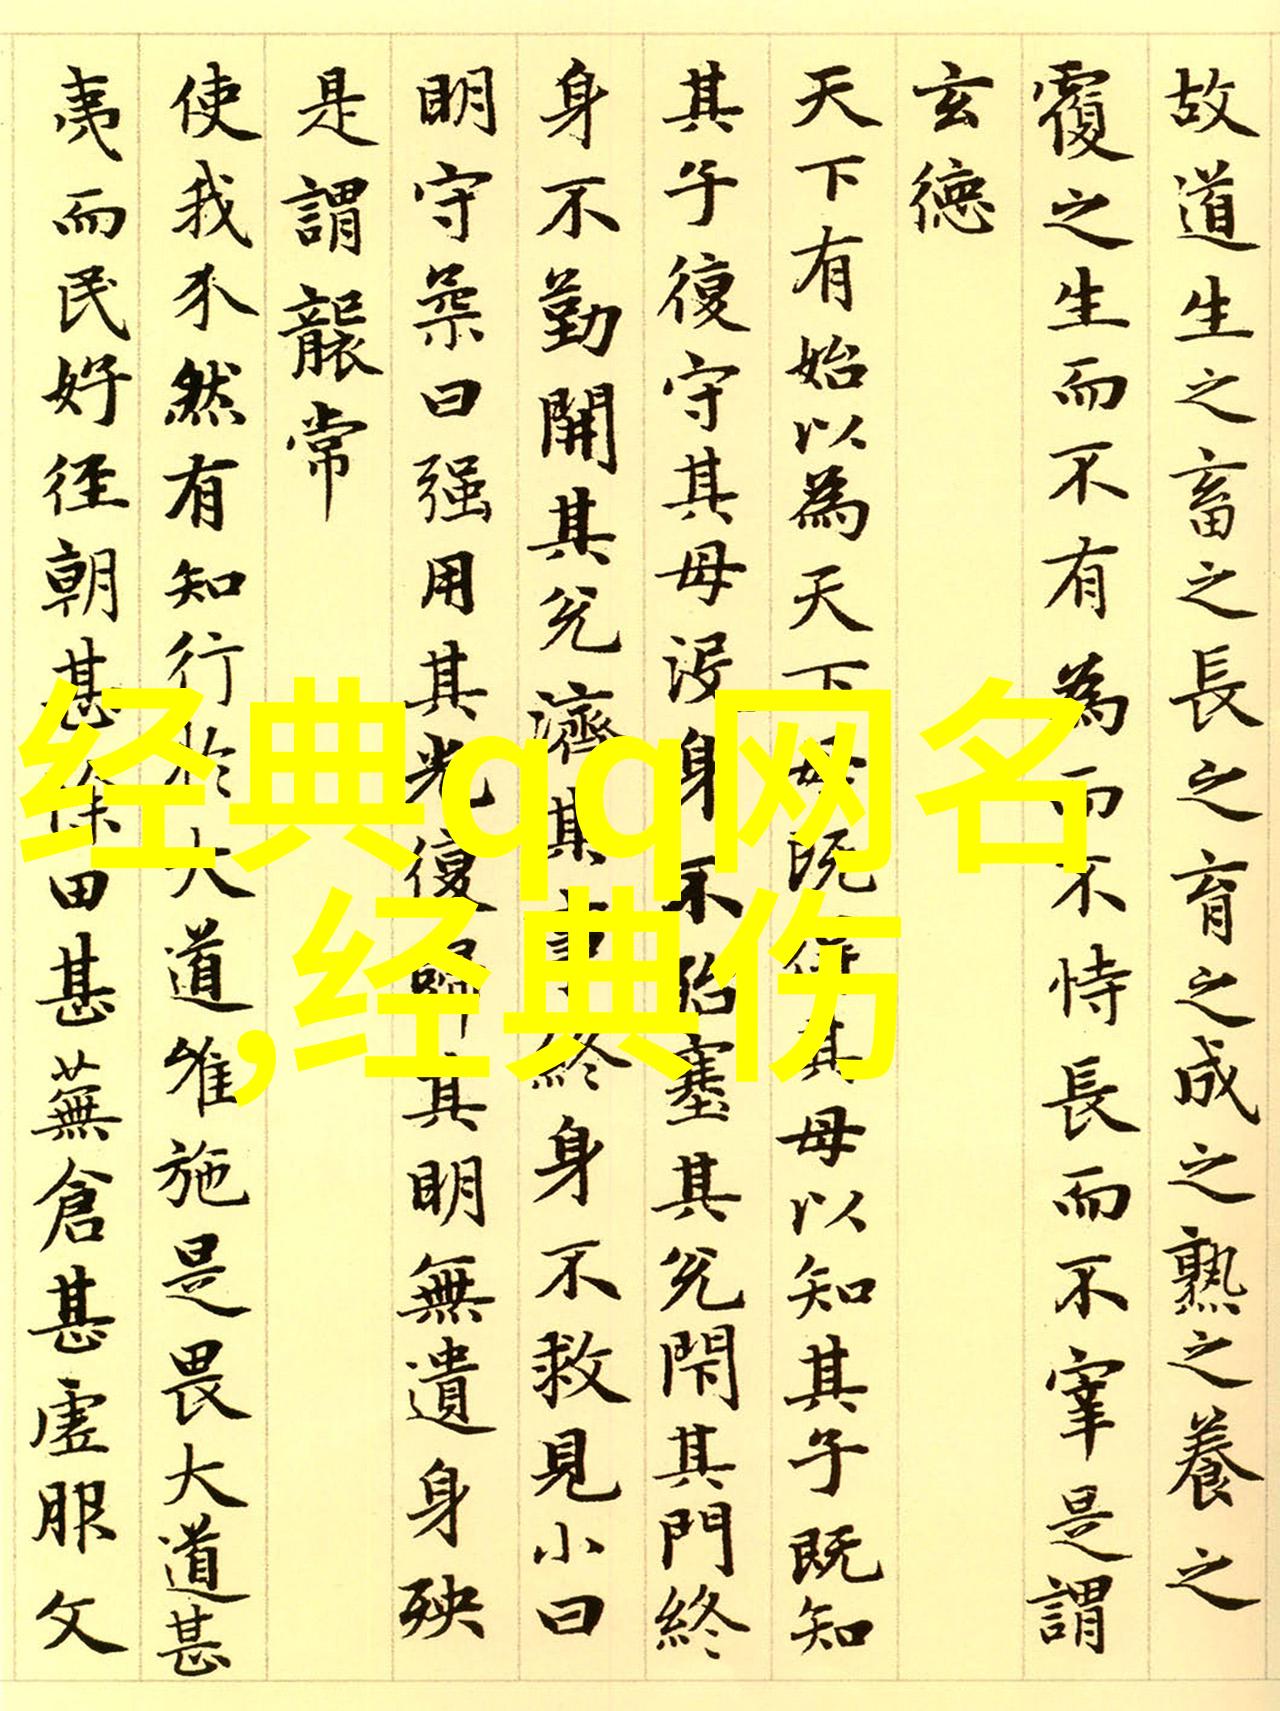 故道生之畜之長之育之成之熟之養之
覆之生而不有為而不恃長而不宰是謂
玄德
天下有始以為天下母既得其母以知其子既知
其子復守其母没身不殆塞其兌閇其門終
身不勤開其兌濟其事終身不救見小曰
明守柔曰强用其光復歸其明無遺身殃
是謂襲常
使我介然有知行於大道唯施是畏大道甚
夷而民好徑朝甚除田甚蕪倉甚虚服文
经典qq网名
,经典伤